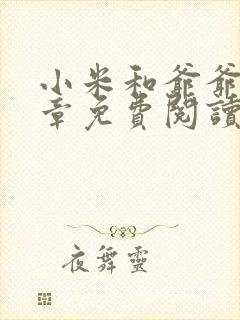 小米和爺爺
章免費閱讀
夜舞靈